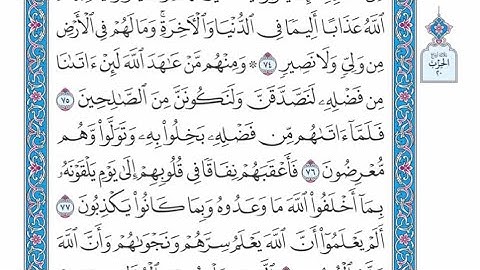 ٱللَّهُ عَذَابًا أَلِيمًا فِى ٱلدُّنْيَا وَٱلْأَخِرَةِ ۚ وَمَا لَهُمْ فِى ٱلْأَرْضِ
مِن وَلِىٍّ وَلَا نَصِيرٍ ٧٤ ۞ وَمِنْهُم مَّنْ عَٰهَدَ ٱللَّهَ لَئِنْ ءَاتَىٰنَا
مِن فَضْلِهِۦ لَنَصَّدَّقَنَّ وَلَنَكُونَنَّ مِنَ ٱلصَّٰلِحِينَ ٧٥
فَلَمَّآ ءَاتَىٰهُم مِّن فَضْلِهِۦ بَخِلُوا۟ بِهِۦ وَتَوَلَّوا۟ وَّهُم
مُّعْرِضُونَ ٧٦ فَأَعْقَبَهُمْ نِفَاقًا فِى قُلُوبِهِمْ إِلَىٰ يَوْمِ يَلْقَوْنَهُۥ
بِمَآ أَخْلَفُوا۟ ٱللَّهَ مَا وَعَدُوهُ وَبِمَا كَانُوا۟ يَكْذِبُونَ ٧٧
أَلَمْ يَعْلَمُوٓا۟ أَنَّ ٱللَّهَ يَعْلَمُ سِرَّهُمْ وَنَجْوَىٰهُمْ وَأَنَّ ٱللَّهَ
الحزب
٢٠